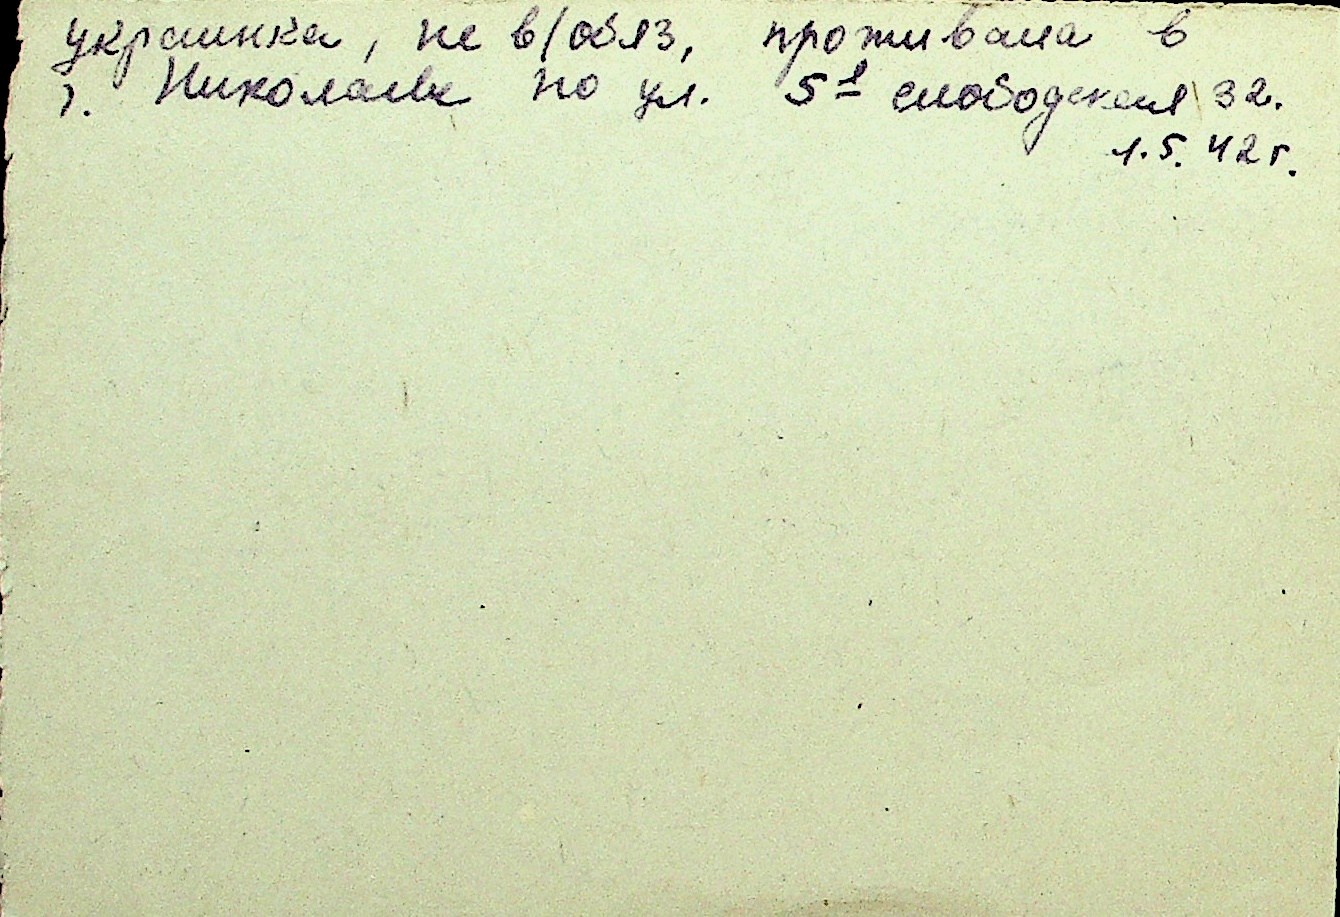 украинка, не в/обяз, проживала в
г. Николаеве по ул. 5я слободская 32.
1.5.42г.